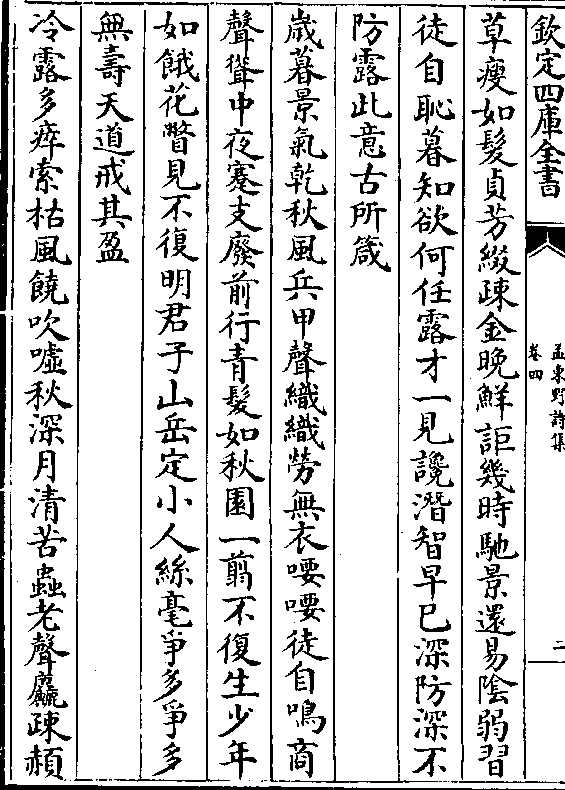 欽定四庫全書
孟東野詩集
卷四
二
草瘦如髮貞芳綴疎金晚鮮詎幾時馳景還易陰弱習
徒自恥暮知欲何任露才一見讒潛智早已深防深不
防露此意古所箴
嵗暮景氣乾秋風兵甲聲織織勞無衣喓喓徒自鳴商
聲聳中夜蹇支廢前行青髮如秋園一翦不復生少年
如餓花瞥見不復明君子山岳定小人絲毫爭多爭多
無壽天道戒其盈
冷露多瘁索枯風饒吹噓秋深月清苦蟲老聲麤疎赬